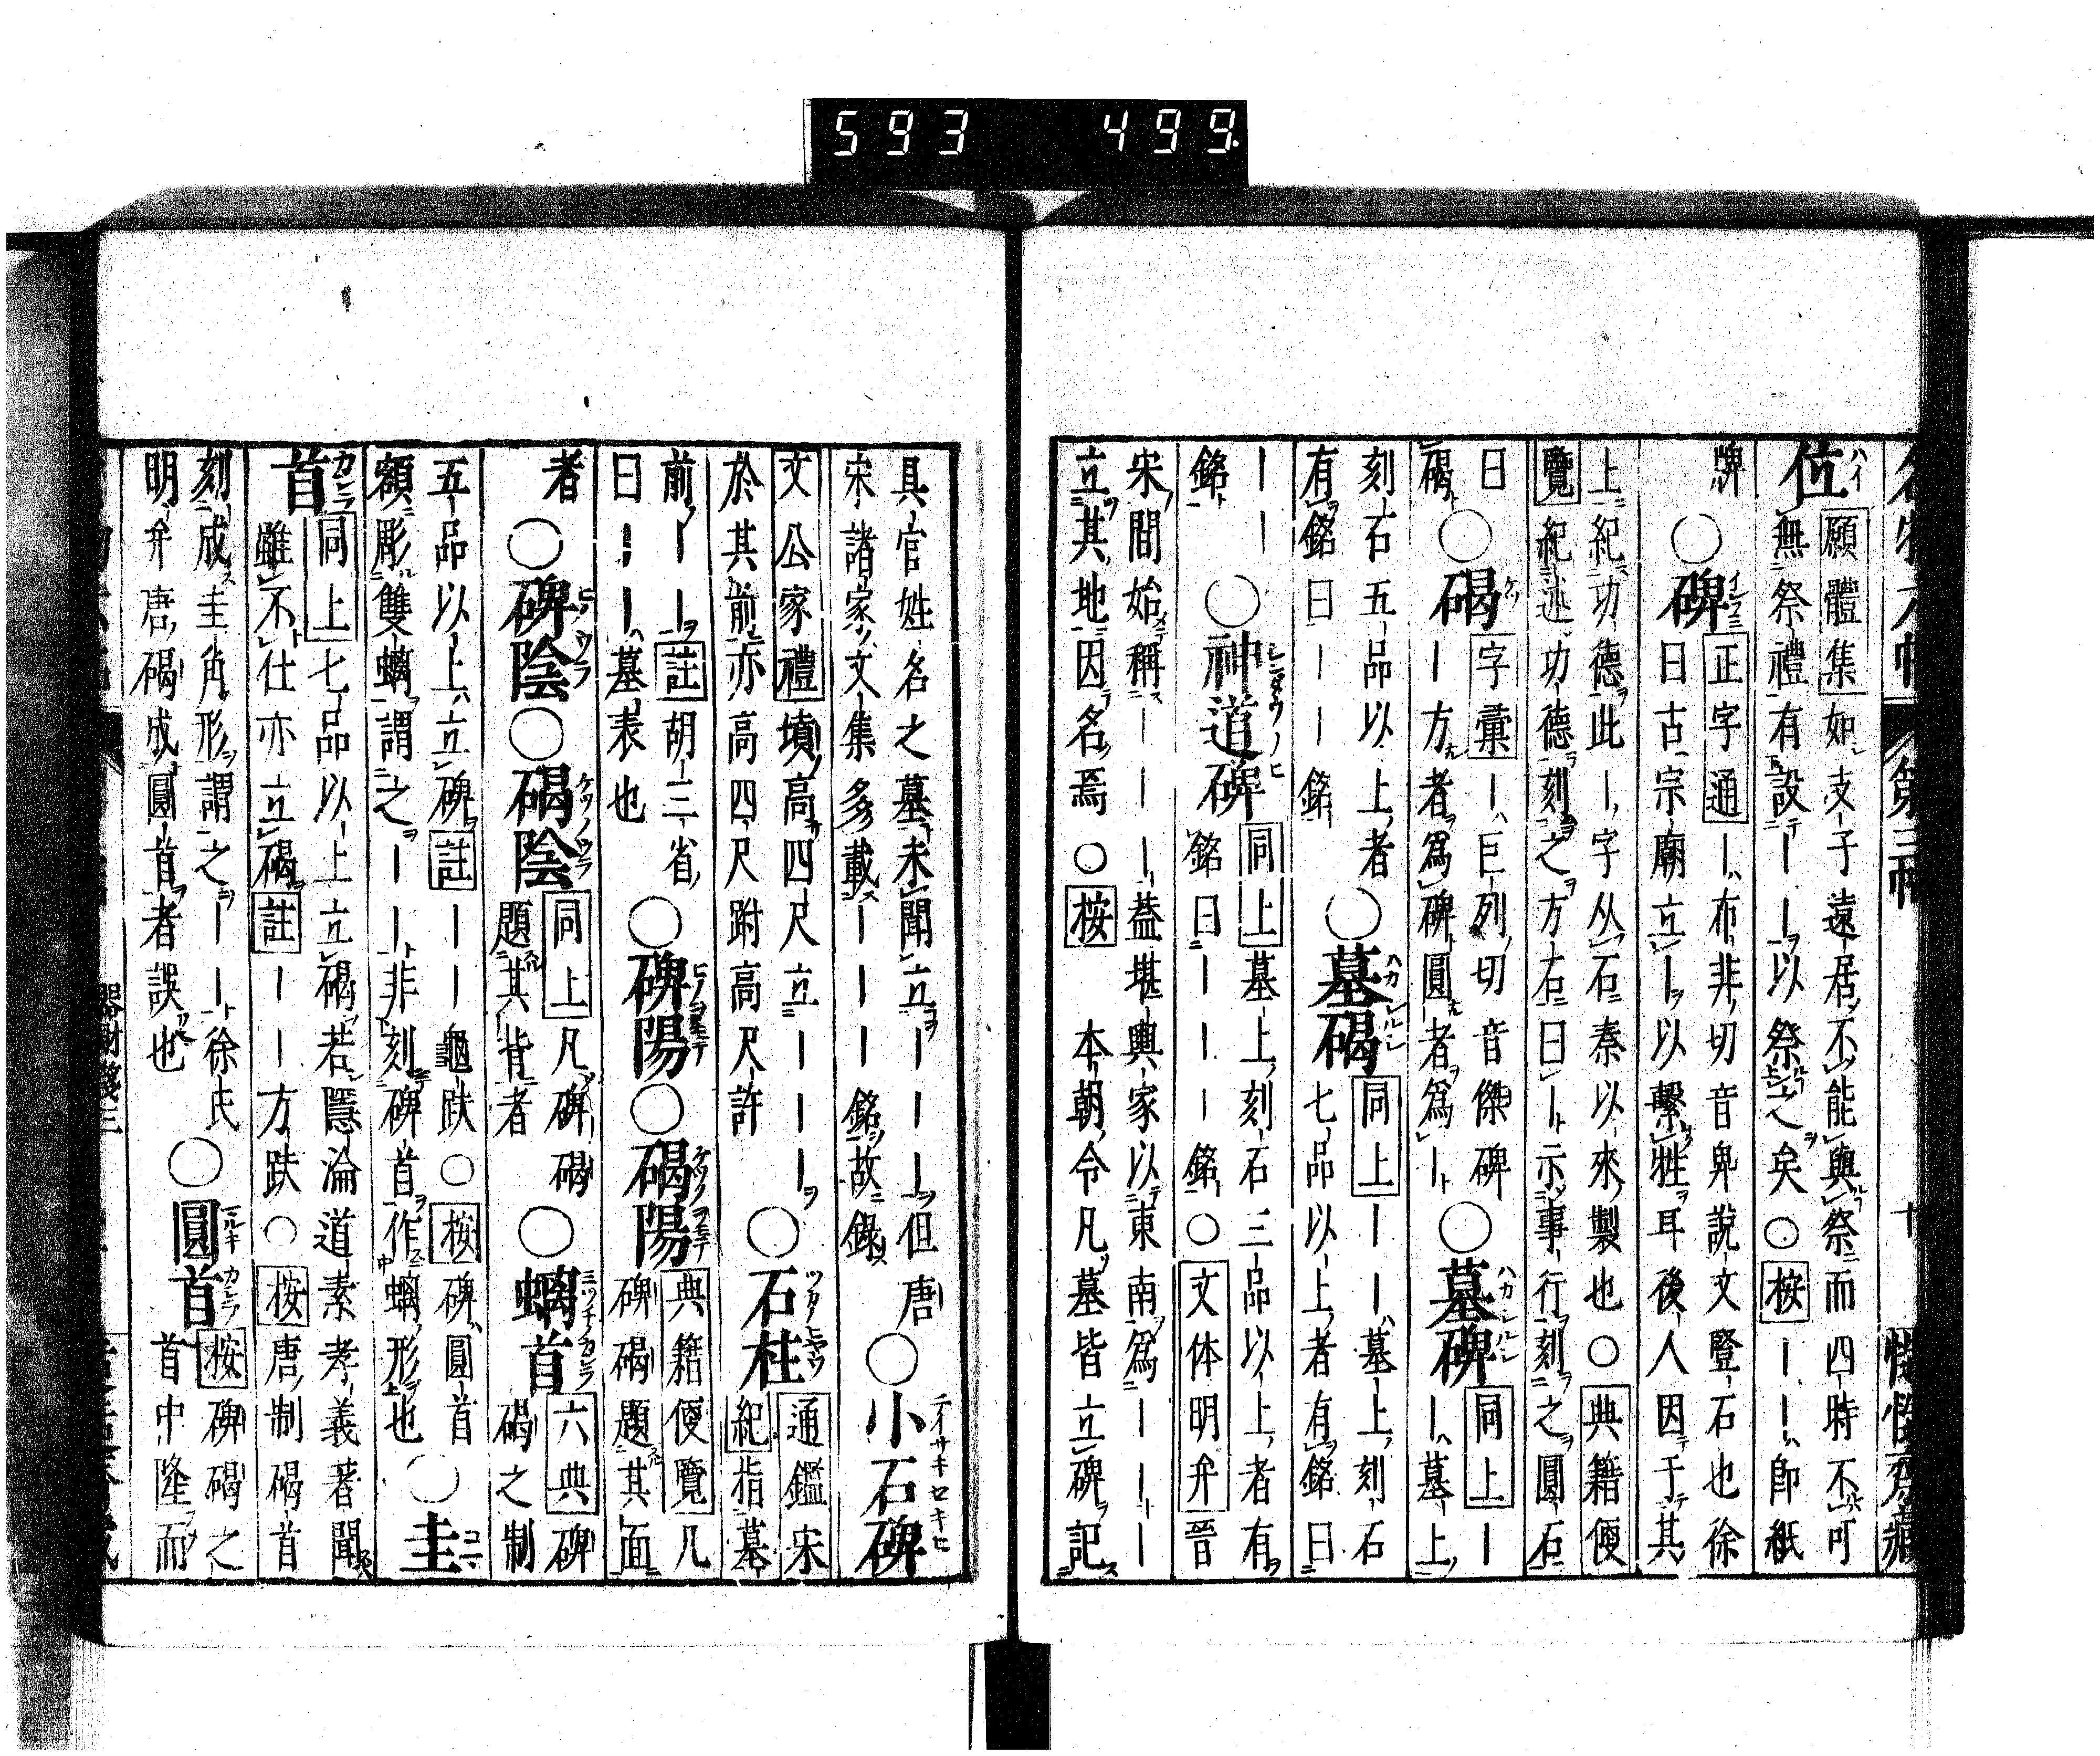 名物六帖 第三帖 十 慥慥齋藏
位 ハイ
願體集如支子遠居不能與祭而四時不可
無祭禮有設｜｜以祭之矣○按｜｜即紙
牌
○碑 イシフミ
正字通｜布非切音卑說文豎石也徐
曰古宗廟立｜以繫牲耳後人因于其
上紀功德此｜字从石秦以來製也○典籍便
覽紀述功德刻之方石曰｜示事行刻之圓石
曰
碣
○碣 ケツ
字彙｜巨列切音傑碑
｜方者爲碑圓者爲｜
○墓碑 ハカシルシ
同上｜
｜墓上
刻石五品以上者
有銘曰｜｜銘
○墓碣 ハカシルシ
同上｜｜墓上刻石
七品以上者有銘曰
｜｜
銘
○神道碑 シンダウノヒ
同上墓上刻石三品以上者有
銘曰｜｜｜銘○文体明弁晉
宋間始稱｜｜｜蓋堪輿家以東南爲｜｜｜
立其地因名焉○按 本朝令凡墓皆立碑記
具官姓名之墓未聞立｜｜｜但唐
宋諸家文集多載｜｜｜銘故錄
○小石碑 チイサキセキヒ
文公家禮墳高四尺立｜｜｜
於其前亦高四尺趺高尺許
○石柱
通鑑宋
紀指墓
前｜｜註胡三省
曰｜｜墓表也
○碑陽 ヒノヲモテ ○碣陽 ケツノヲモテ
典籍便覽凡
碑碣題其面
者 ○碑陰 ヒノウラ ○碣陰 ケツノウラ
同上凡碑碣
題其背者
○螭首 ミツチノカシラ
六典碑
碣之制
五品以上立碑註｜｜龜趺○按碑圓首
額彫雙螭謂之｜｜非刻碑首作螭形也
○圭
首 カシラ
同上七品以上立碣若隱淪道素孝義著聞
雖不仕亦立碣註｜｜方趺○按唐制碣首
刻成圭角形謂之｜｜徐氏
明弁唐碣成圓首者誤也
○圓首 マルキカシラ
按碑碣之
首中隆而
器財箋三
593 499